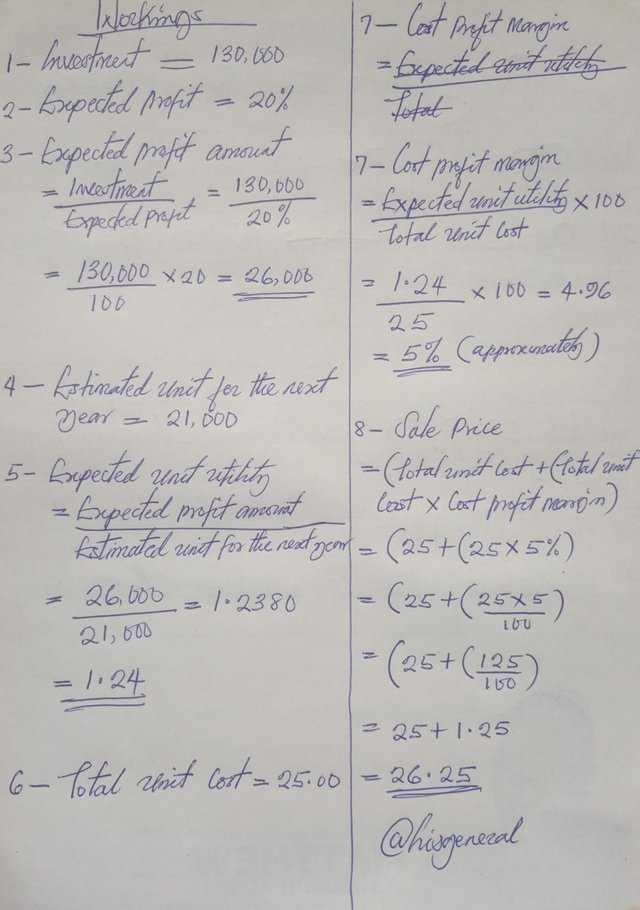 Workings
1- Investment = 130,000
2- Expected Profit = 20%
3- Expected profit amount
= Investment = 130,000
Expected profit 20%
= 130,000 × 20 = 26,000
100
4 - Estimated unit for the next
year = 21,000
5- Expected unit utility
= Expected profit amount
Estimated unit for the next year
= 26,000 = 1.2380
21,000
= 1.24
6 - Total unit cost = 25.00
7- Cost Profit Margin
= Expected unit utility
Total
7- Cost profit margin
= Expected unit utility × 100
Total unit cost
= 1.24 × 100 = 4.96
25
= 5% (approximately)
8- Sale Price
= (Total unit cost + (Total unit
cost × cost profit margin)
= (25 + (25 × 5%)
= (25 + (25×5)
100
= (25 + (125)
100
= 25 + 1.25
= 26.25
@hisgeneral